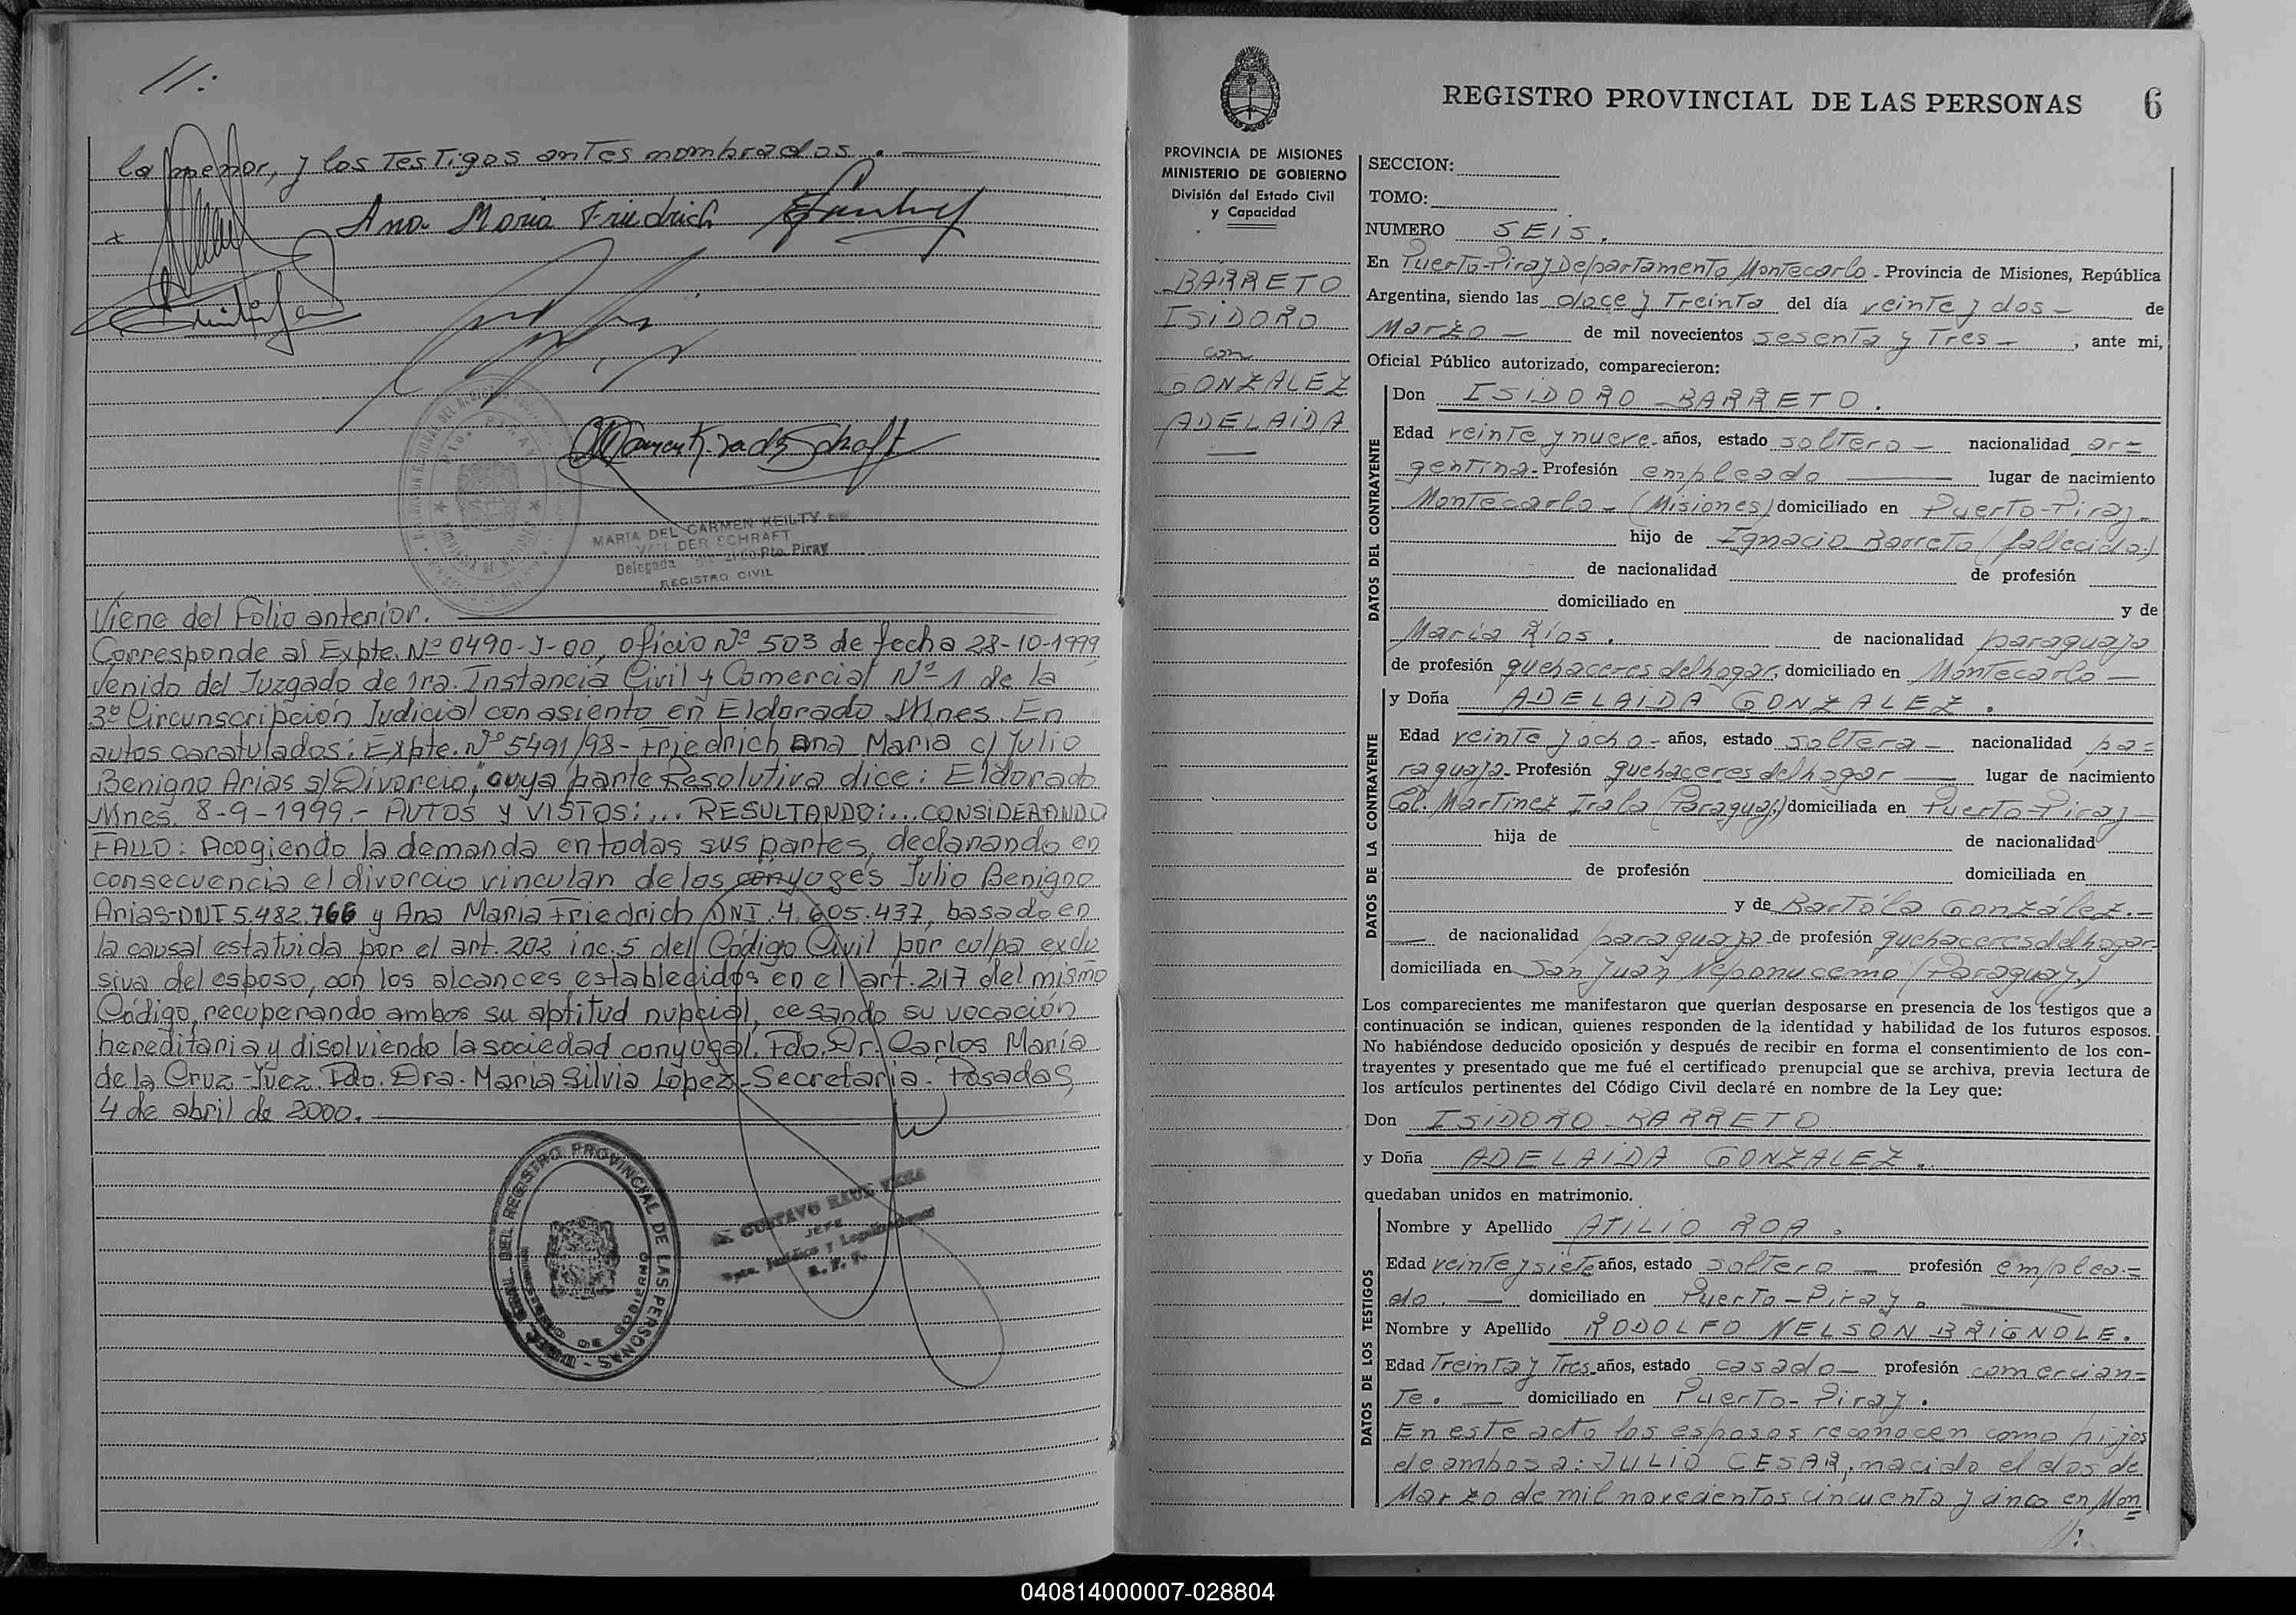 //:
la menor, y los Testigos antes nombrados. —
x
Ana Maria Friedrich
MARIA DEL CARMEN KEILTY
VAN DER SCHRAFT
Delegada Pto. Piray
REGISTRO CIVIL
Viene del Folio anterior.
Corresponde al Expte. Nº 0490-J-00, oficio Nº 503 de fecha 28-10-1999
venido del Juzgado de 1ra. Instancia Civil y Comercial Nº 1 de la
3º Circunscripción Judicial con asiento en Eldorado Mnes. En
autos caratulados: Expte. Nº 5491/98 - Friedrich Ana Maria c/ Julio
Benigno Arias s/ Divorcio," cuya parte Resolutiva dice: Eldorado
Mnes. 8-9-1999.- AUTOS Y VISTOS:... RESULTANDO:... CONSIDERANDO
FALLO: Acogiendo la demanda en todas sus partes, declarando en
consecuencia el divorcio vincular de los conyuges Julio Benigno
Arias-DNI 5.482.766 y Ana Maria Friedrich DNI. 4.605.437, basado en
la causal estatuida por el art. 202 inc. 5 del Código Civil por culpa exclu
siva del esposo, con los alcances establecidos en el art. 217 del mismo
Código, recuperando ambos su aptitud nupcial, cesando su vocación
hereditaria y disolviendo la sociedad conyugal. Fdo. Dr. Carlos María
de la Cruz-Juez. Fdo. Dra. Maria Silvia López-Secretaria. Posadas,
4 de abril de 2000.
REGISTRO PROVINCIAL DE LAS PERSONAS
GUSTAVO RAUL VERA
JEFE
Dpto. Jurídico y Legalizaciones
R. P. P.
REGISTRO PROVINCIAL DE LAS PERSONAS 6
PROVINCIA DE MISIONES
MINISTERIO DE GOBIERNO
División del Estado Civil
y Capacidad
BARRETO
ISIDORO
con
GONZALEZ
ADELAIDA
SECCION:
TOMO:
NUMERO SEIS.
En Puerto-Piray Departamento Montecarlo - Provincia de Misiones, República
Argentina, siendo las doce y Treinta del día veinte y dos - de
Marzo - de mil novecientos sesenta y Tres - , ante mi,
Oficial Público autorizado, comparecieron:
DATOS DEL CONTRAYENTE
Don ISIDORO BARRETO.
Edad veinte y nueve - años, estado soltero - nacionalidad ar=
gentina - Profesión empleado — lugar de nacimiento
Montecarlo - (Misiones) domiciliado en Puerto-Piray -
hijo de Ignacio Barreto (fallecido)
de nacionalidad de profesión
domiciliado en y de
María Ríos. de nacionalidad paraguaya
de profesión quehaceres del hogar, domiciliado en Montecarlo —
DATOS DE LA CONTRAYENTE
y Doña ADELAIDA GONZALEZ.
Edad veinte y ocho - años, estado soltera - nacionalidad pa=
raguaya - Profesión quehaceres del hogar — lugar de nacimiento
Col. Martinez Irala (Paraguay) domiciliada en Puerto-Piray -
hija de de nacionalidad
de profesión domiciliada en
y de Bartola González.-
— de nacionalidad paraguaya de profesión quehaceres del hogar
domiciliada en San Juan Neponucemo (Paraguay)
Los comparecientes me manifestaron que querían desposarse en presencia de los testigos que a
continuación se indican, quienes responden de la identidad y habilidad de los futuros esposos.
No habiéndose deducido oposición y después de recibir en forma el consentimiento de los con-
trayentes y presentado que me fué el certificado prenupcial que se archiva, previa lectura de
los artículos pertinentes del Código Civil declaré en nombre de la Ley que:
Don ISIDORO BARRETO
y Doña ADELAIDA GONZALEZ.
quedaban unidos en matrimonio.
DATOS DE LOS TESTIGOS
Nombre y Apellido ATILIO ROA.
Edad veinte y siete años, estado soltero — profesión emplea=
do. — domiciliado en Puerto-Piray.
Nombre y Apellido RODOLFO NELSON BRIGNOLE.
Edad Treinta y Tres años, estado casado - profesión comercian=
Te. — domiciliado en Puerto-Piray.
En este acto los esposos reconocen como hijos
de ambos a: JULIO CESAR, nacido el dos de
Marzo de mil novecientos cincuenta y cinco en Mon=
//:
040814000007-028804